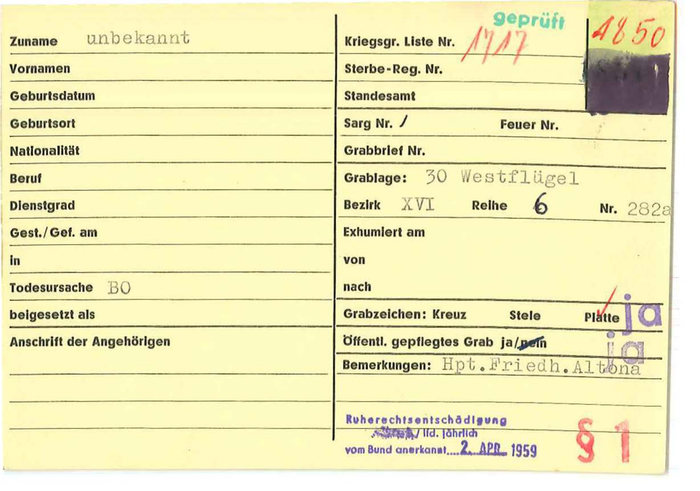 geprüft
1850
Zuname unbekannt
Vornamen
Geburtsdatum
Geburtsort
Nationalität
Beruf
Dienstgrad
Gest./Gef. am
in
Todesursache BO
beigesetzt als
Anschrift der Angehörigen
Kriegsgr. Liste Nr. 1717
Sterbe-Reg. Nr.
Standesamt
Sarg Nr. / Feuer Nr.
Grabbrief Nr.
Grablage: 30 Westflügel
Bezirk XVI Reihe 6 Nr. 282a
Exhumiert am
von
nach
Grabzeichen: Kreuz Stele Platte ja
Öffentl. gepflegtes Grab ja/nein ja
Bemerkungen: Hpt.Friedh.Altona
Ruherechtsentschädigung
/ lfd. jährlich
vom Bund anerkannt.... 2. APR. 1959
§ 1